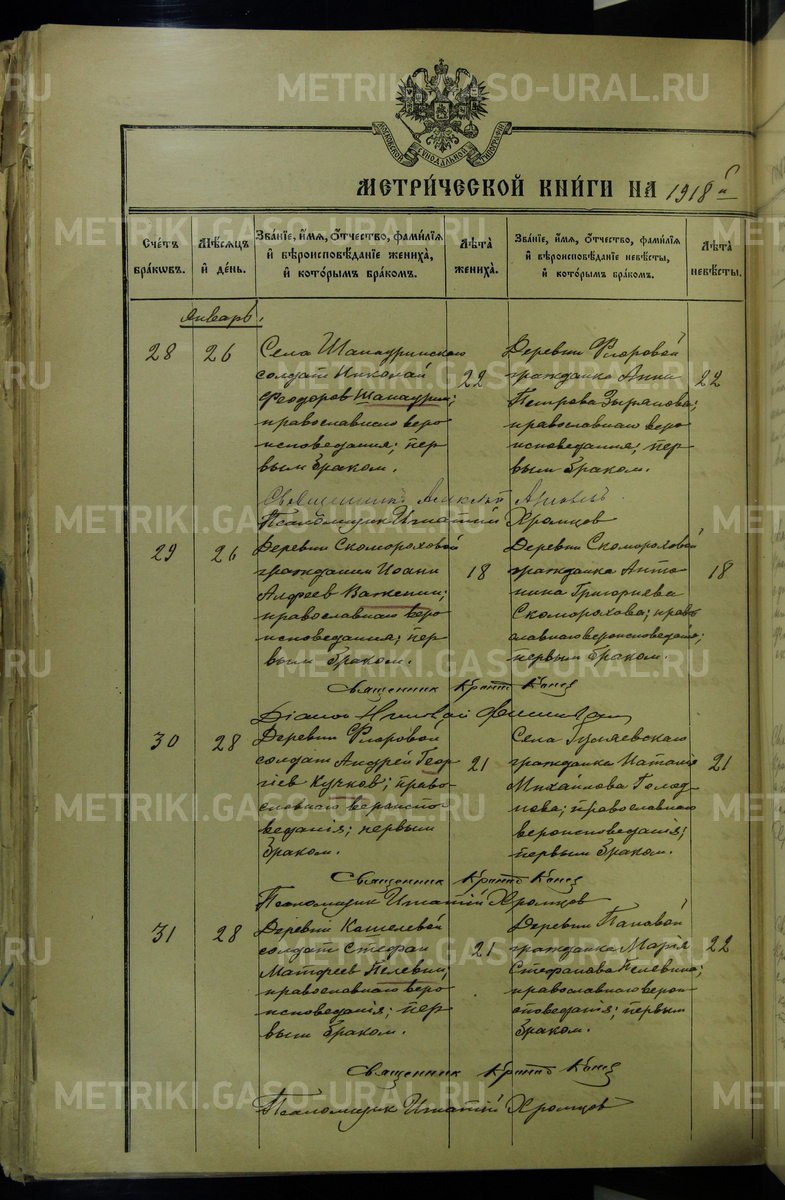 МОСКОВСКОЙ СУНОДАЛЬНОЙ ТИПОГРАФІИ
МЕТРИ́ЧЕСКОЙ КНИ́ГИ НА 1918 й
Сче́тъ бра́кωвъ.
Мѣ́сяцъ и҆ де́нь.
Зва́нїе, и҆́мѧ, ѻ҆́тчество, фами́лїѧ и҆ вѣроисповѣ́данїе жениха̀, и҆ кото́рымъ бра́комъ.
Лѣ́та жениха̀.
Зва́нїе, и҆́мѧ, ѻ҆́тчество, фами́лїѧ и҆ вѣроисповѣ́данїе невѣ́сты, и҆ кото́рымъ бра́комъ.
Лѣ́та невѣ́сты.
Январь.
28 26
Села
солдат Николай
Феодоров
православнаго веро
исповедания; пер
вым браком.
22
Деревни Флоровой
гражданка Анна
Петрова Зырянова;
православнаго веро
исповедания; пер
вым браком.
22
Священникъ
Псаломщик Игнатий Хромцов
29 26
Деревни Скомороховой
гражданин Иоанн
Алфеев Важенин;
православнаго веро
исповедания; пер
вым браком.
18
Деревни Скомороховой
гражданка Анто
нина Григориева
Скоморохова; прав
славнаго вероисповеданія;
первым браком.
18
Священник
Діакон
30 28
Деревни Флоровой
солдат Андрей Геор
гіев Кучков; право
славнаго вероиспо
веданія; первым
браком.
21
Села
гражданка Наталія
Михайлова Голод
нова; православнаго
вероисповеданія;
первым браком.
21
Священник
Псаломщик Игнатій Хромцов
31 28
Деревни Кошелевой
солдат Стефан
Матфеев Пелевин;
православнаго веро
исповеданія; пер
вым браком.
21
Деревни Пановой
гражданка Марія
Стефанова Пелевина;
православнаго вероис
поведанія; первым
браком.
22
Священник
Псаломщик Игнатій Хромцов
METRIKI.GASO-URAL.RU